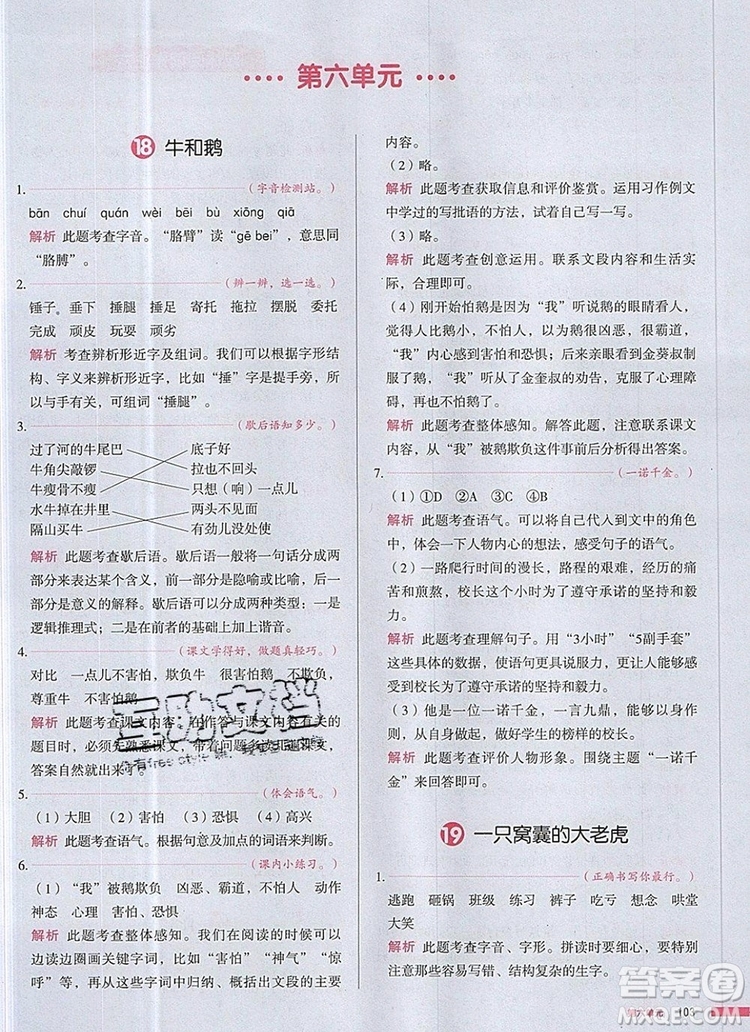 第六单元
18 牛和鹅
1.（字音检测站。）
bān chuí quán wèi bēi bù xiōng qiā
解析 此题考查字音。“胳臂”读“gē bei”，意思同
“胳膊”。
2.（辨一辨，选一选。）
锤子。垂下 捶腿 捶足 寄托 拖拉 摆脱 委托
完成 顽皮 玩耍 顽劣
解析 考查辨析形近字及组词。我们可以根据字形结
构、字义来辨析形近字，比如“捶”是提手旁，所
以有动作，可以组词“捶腿”。
3.（歇后语知多少。）
过了河的牛尾巴 底子好
牛角尖敲锣 拉也不回头
牛瘦骨不瘦 只想（响）一点儿
水牛掉在井里 两头不见面
隔山买牛 有劲儿没处使
解析 此题考查歇后语。歇后语一般将一句话分成两
部分来表达某个含义，前一部分是隐喻或比喻，后一
部分是意义的解释。歇后语可以分成两种类型：一是
逻辑推理式；二是在前者的基础上加上谐音。
4.（课文学得好，做题真轻巧。）
对比 一点儿不害怕 欺负牛 很害怕鹅 不欺负，
尊重牛 不害怕鹅
解析 此题考查课文内容，
题目时，必须先熟悉课文，带着问题多读几遍课文，
答案自然就出来了。
5.（体会语气。）
（1）大胆 （2）害怕 （3）恐惧 （4）高兴
解析 此题考查语气。根据句意及加点的词语来判断。
6.（课内小练习。）
（1）“我”被鹅欺负 凶恶、霸道，不讲理 动作
神态 心理 害怕、恐惧
解析 此题考查整体感知。我们在阅读的时候可以边
读边圈画关键字词，比如“害怕”“神气”“惊
呼”等，再从这些字词中归纳、概括出文段的主要
内容。
（2）略。
解析 此题考查获取信息和评价鉴赏。运用习作例文
中学过的写批语的方法，试着自己写一写。
（3）略。
解析 此题考查创意运用。联系文段内容和生活实
际，合理即可。
（4）刚开始怕鹅是因为“我”听说鹅的眼睛看人，
觉得人比鹅小，不怕人，以及鹅很凶恶，很霸
道，“我”内心感到害怕和恐惧；后来面对金葵叔制
服了鹅，“我”听从了金奎叔的劝告，克服了心理障
碍，不再怕鹅。
解析 此题考查整体感知。解答此题，注意联系课文
内容，从“我”被鹅欺负这件事前后分析得出答案。
7.（一诺千金。）
（1）①D ②A ③C ④B
解析 此题考查语气。可以将自己代入到文中的角色
中，体会一下人物内心的想法，感受句子的语气。
（2）一路爬行时间的漫长，路程的艰难，经历的痛
苦和煎熬，校长为了遵守承诺的坚持和毅力。
解析 此题考查理解句子。用“3小时”“5副手套”
这些数据，使语句更有说服力，让读者更能深刻地感
受到校长为了遵守承诺的坚持和毅力。
（3）他是一位一诺千金，一言九鼎，能够以身作
则，从自身做起，做好学生的榜样的校长。
解析 此题考查评价人物形象。围绕主题“一诺千
金”来回答即可。
19 一只窝囊的大老虎
1.（正确书写你最行。）
逃跑 砸锅 班级 练习 裤子 吃亏 想念 哄堂
大笑
解析 此题考查字音、字形。拼读时要细心，特别要
注意容易写错、结构复杂的生字。
互助文档
103
答案圈